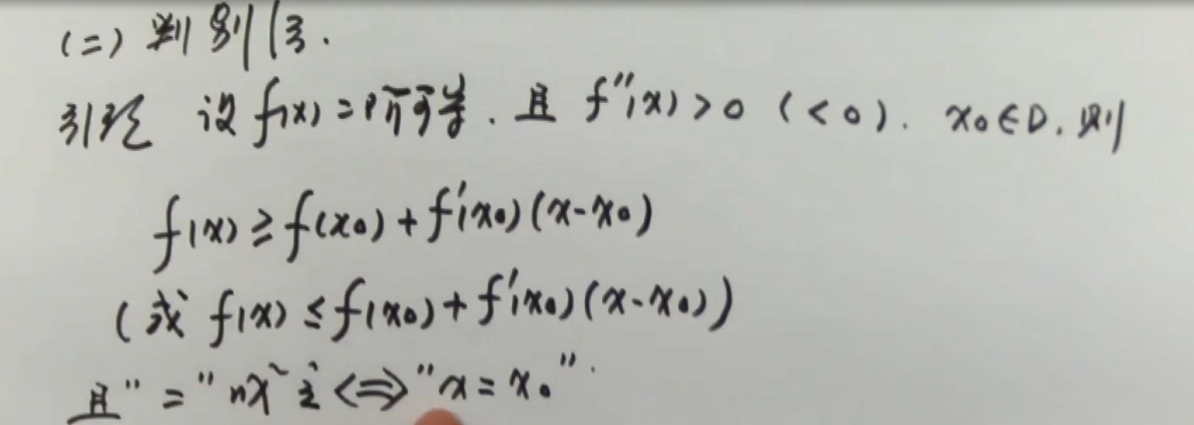 (二) 判别法.
引理 设 f(x) 二阶可导. 且 f''(x) > 0 (< 0). x₀ ∈ D, 则
f(x) ≥ f(x₀) + f'(x₀)(x - x₀)
(或 f(x) ≤ f(x₀) + f'(x₀)(x - x₀))
且 "=" 成立 <=> "x = x₀".